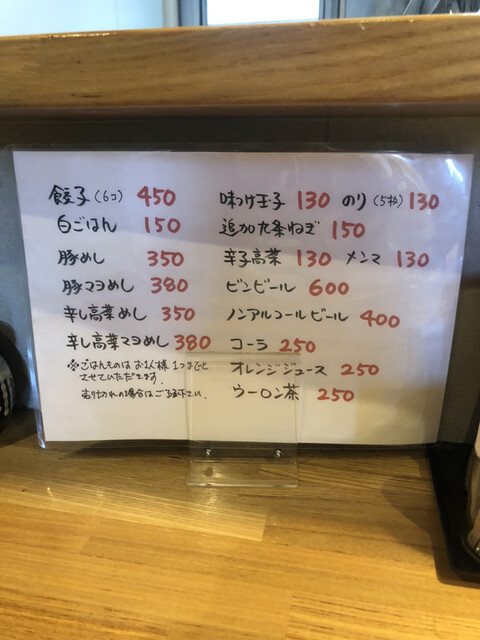 餃子(6コ) 450
白ごはん 150
豚めし 350
豚マヨめし 380
辛し高菜めし 350
辛し高菜マヨめし 380
※ごはんものはお1人様1つまでと
させていただきます.
売り切れの場合はご了承下さい.
味つけ玉子 130 のり(5枚) 130
追加九条ねぎ 150
辛子高菜 130 メンマ 130
ビンビール 600
ノンアルコールビール 400
コーラ 250
オレンジジュース 250
ウーロン茶 250